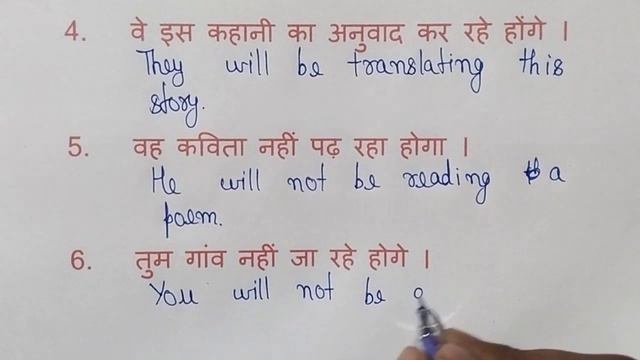 4. वे इस कहानी का अनुवाद कर रहे होंगे ।
They will be translating this
story.
5. वह कविता नहीं पढ़ रहा होगा ।
He will not be reading a
poem.
6. तुम गांव नहीं जा रहे होगे ।
You will not be